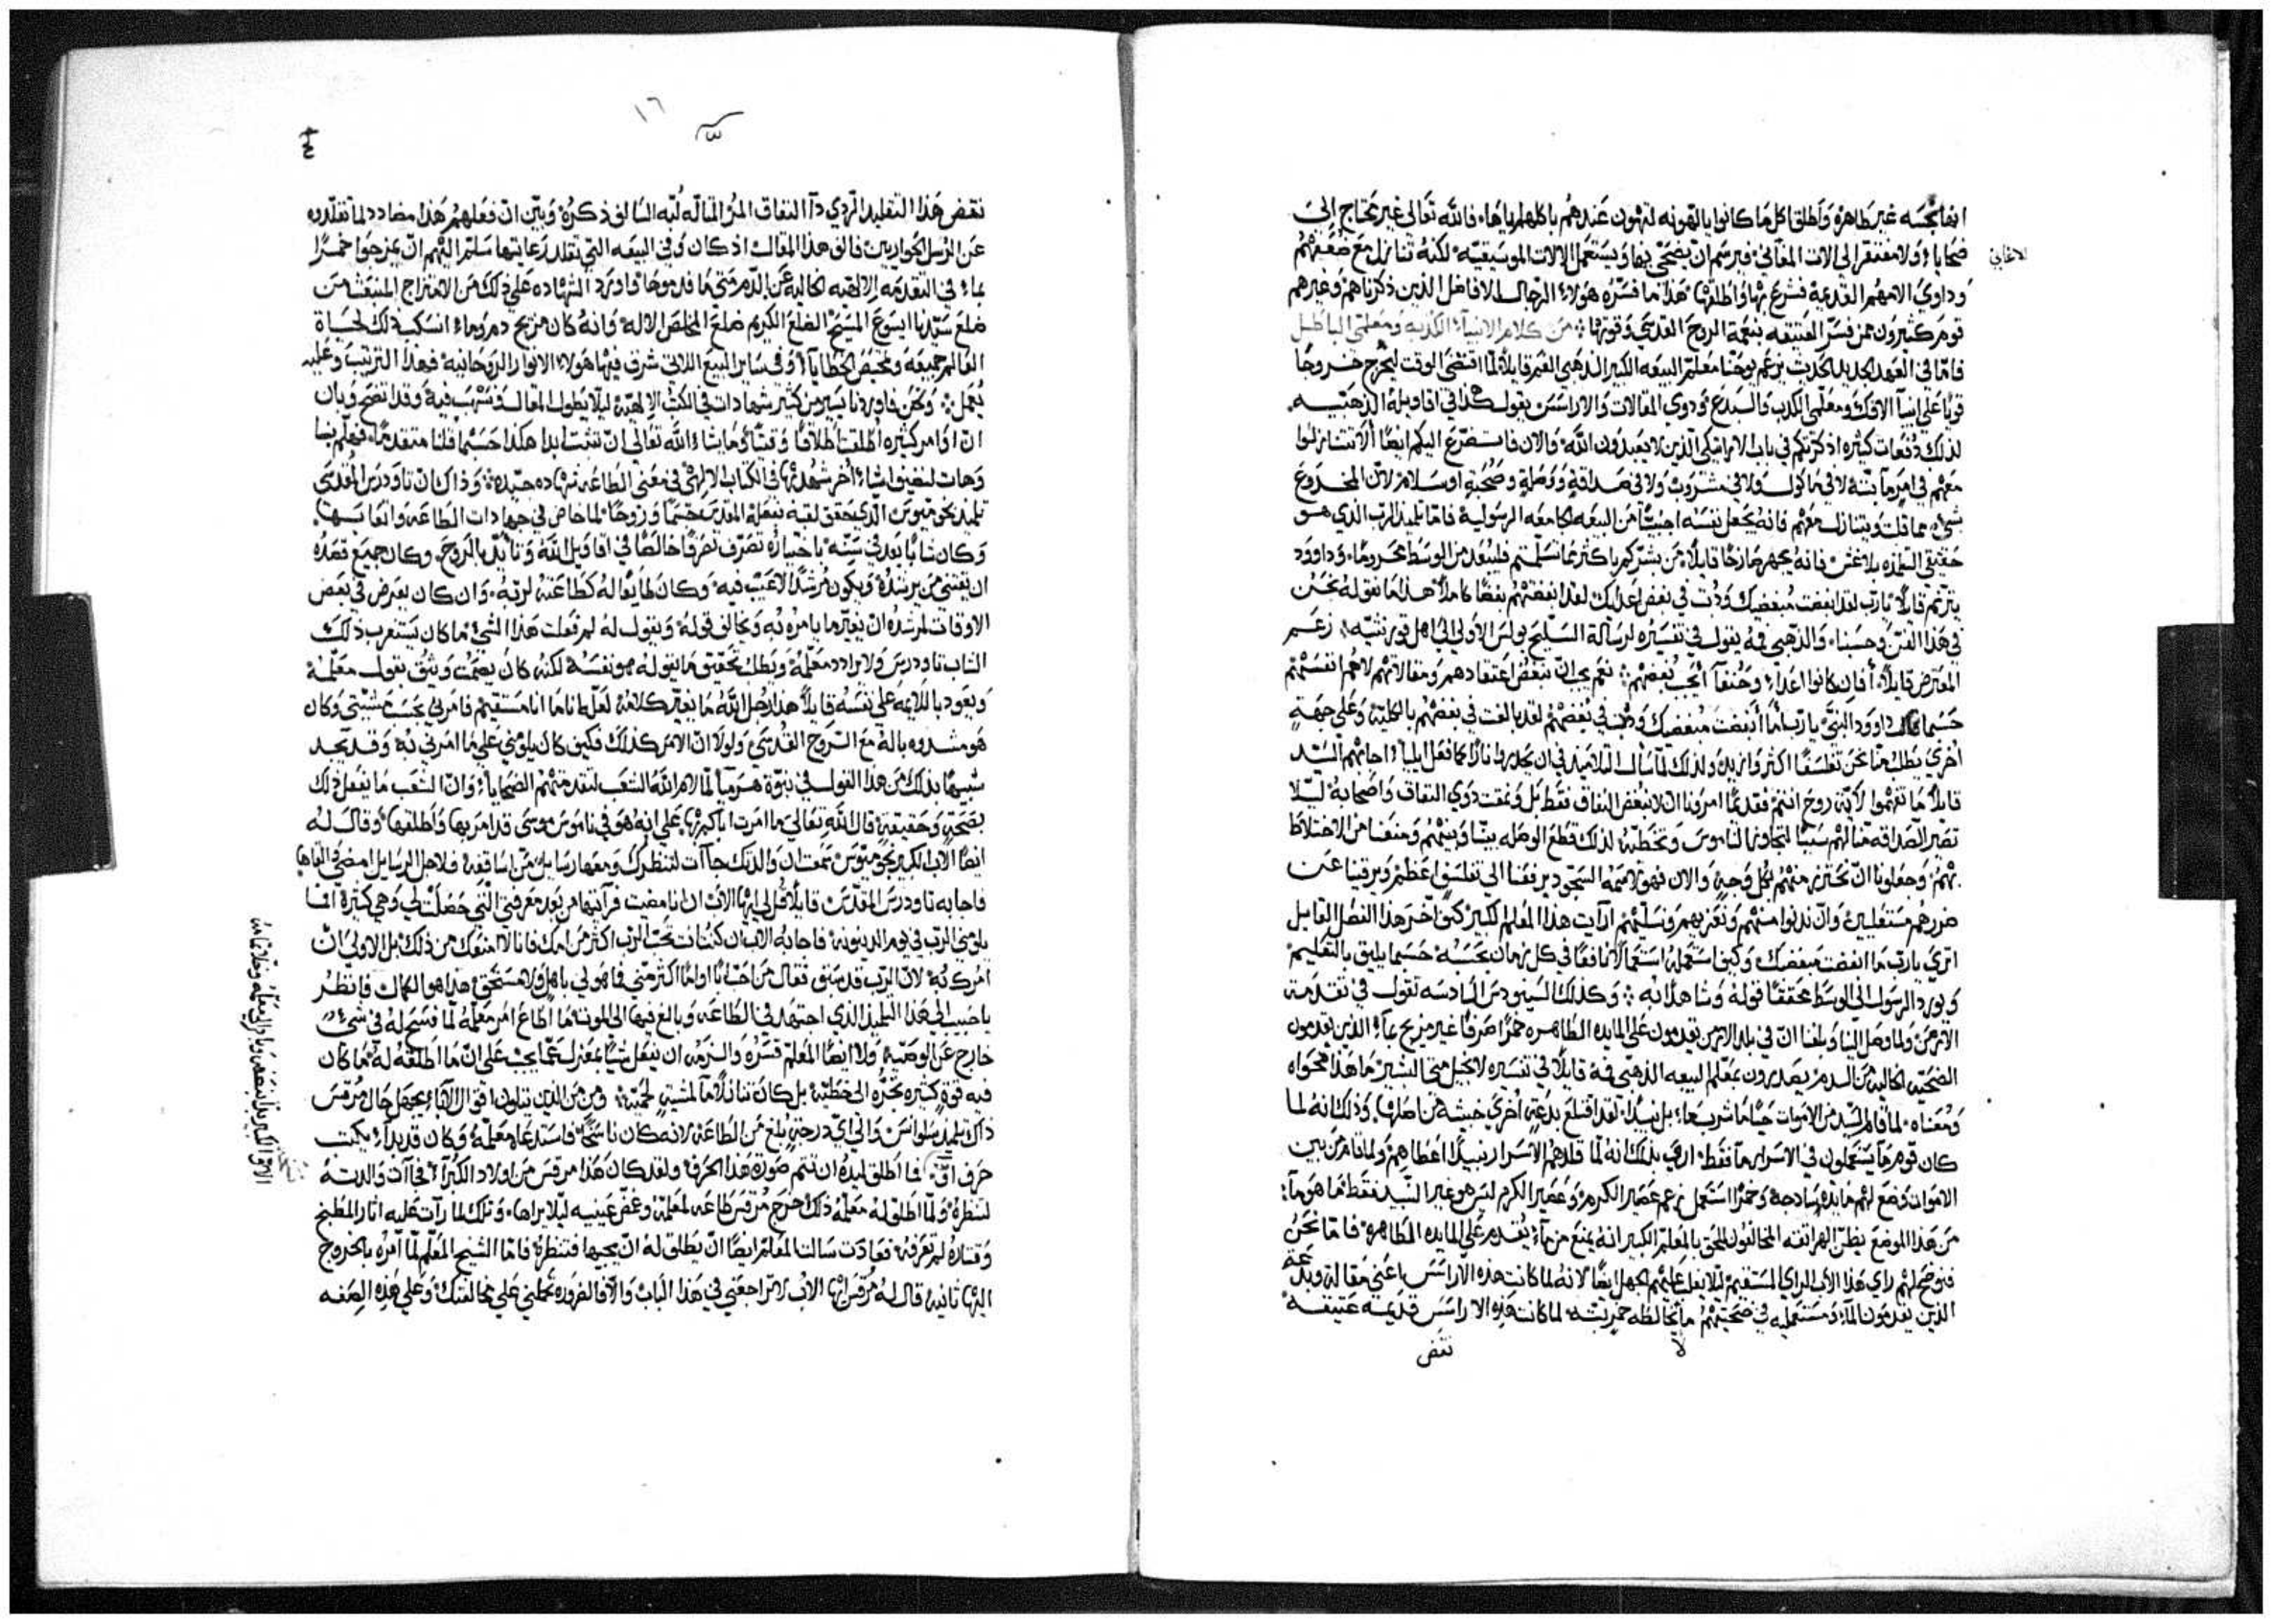 انها نجسه غير طاهره واطلق اكل ما كانوا يالهونه لتهون عندهم باكلهم اياها فالله تعالى غير محتاج الى
ضحايا ولا مفتقر الى الات المعاني فبرسم ان يضحي بها ويستعمل الالات الموسيقيه لكنه تنازل مع ضعفهم
الاغاني
وداوى الامهم القديمة فشرع بها واطلقها هذا ما فسره هولاء الرجال الافاضل الذين ذكرناهم وغيرهم
قوم كثيرون ممن فسر العتيقه بنعمة الروح القدسي وقوتها من كلام الانبياء الكذبه ومعلمي الباطل
فاما في العهد الجديد الحديث يزعم يوحنا معلم البيعه الكبير الذهبي الفم قايلا لما اقتضى الوقت ليخرج خروجا
قويا على انبيا الافك ومعلمي الكذب والبدع وذوي المقالات والاراسس يقول هكذا في اقاويله الذهبيه
لذلك دفعات كثيره اذكرتكم في باب الاراتيكي الذين لا يعبدون الله والان فاتضرع اليكم ايضا الا تتنازلوا
معهم في امر ما بته لا في ماكول ولا في مشروب ولا في صداقة ووصلة وصحبة او سلام لان المخدوع
بشي مما قلت ويتنازل معهم فانه يجعل نفسه اجنبيا من البيعه الجامعه الرسولية فاما تلميذ الرب الذي هو
حقيقي التلمذه بلا غش فانه يجهر صارخا قايلا من بشركم باكثر مما تسلمتم فليبعد من الوسط محروما وداوود
يترنم قايلا يا رب لقد ابغضت مبغضيك وذبت في بغض اعدايك لقد ابغضتهم بغضا كاملا هذا ما نقوله نحن
في هذا الفن وحسبنا والذهبي فمه يقول في تفسيره لرسالة السليح بولس الاولى الى اهل قورنتيه زعم
المعترض قايلا أفان كانوا اعداء وحنفا أيجب بغضهم نعم يجب ان نبغض اعتقادهم ومقالاتهم لا هم انفسهم
حسبما قال داوود النبي يا رب اما أبغضت مبغضيك وذبت في بغضهم لقد بالغت في بغضهم بالكلية وعلى جهة
اخرى يطلب منا نحن تفلسفا اكثر وازيد ولذلك لما سال التلاميذ في ان يحدروا نارا كما فعل ايليا اجابهم السيد
قايلا ما تفهموا لاية روح انتم فقديما امروا ان لا نبغض النفاق فقط بل ونمقت ذوي النفاق واصحابه ليلا
تصير الصداقه منا لهم سببا لتجاوزنا الناموس وتخطيه لذلك قطع الوصله بيننا وبينهم ومنعنا من الاختلاط
بهم وجعلونا ان نحترز منهم بكل وجه والان فهو تسمه السجود يرفعنا الى تفلسف اعظم ويرقينا عن
ضررهم مستعليين وان ندنوا منهم ونعزيهم ونسليهم ارآيت هذا المعلم الكبير كيف اخر هذا الفصل القايل
اترى يا رب ما ابغضت مبغضيك وكيف استعمله استعمالا نافعا في كل زمان بحسبه حسبما يليق بالتعليم
ويورد الرسول الى الوسط محققا قوله وشاهدا به وكذلك السينودس السادسه تقول في تقدمة
الارمن ولما وصل الينا وبلغنا ان في بلاد الارمن يقدمون على المايده الطاهره خمرا صرفا غير مزيج بماء الذين يقدمون
الضحيه الخاليه من الدم يصدرون بمعلم البيعه الذهبي فمه قايلا في تفسيره لانجيل متى البشير ما هذا محواه
ومعناه لما قام السيد من الاموات حيا ما شرب ماء بل نبيذا لقد اقتلع بدعة اخرى خبيثة من اصلها وذلك انه لما
كان قوم ما يستعملون في الاسرار ماء فقط ارى بذلك انه لما قلدهم الاسرار نبيذا اعطاهم ولما قام من بين
الاموات وضع لهم مايدة ساذجة وخمرا استعمل زعم عصير الكرم وعصير الكرم ليس هو غير النبيذ فقط لا هو ماء
من هذا الموضع يظن الهراتقه المخالفون للحق بالمعلم الكبير انه يمنع من ماء يقدم على المايده الطاهره فاما نحن
فنوضح لهم راي هذا الاب الراي المستقيم ليلا يغلب عليهم الجهل ايضا لانه لما كانت هذه الاراسس اعني مقالة وبدعة
الذين يقدمون الماء ومستعمليه في ضحيتهم ما يخالطه خمر بته لما كانت هذه الاراسس قديمه عتيقه
لا
نقض
١٦
نقض هذا التقليد الردي داا النفاق المر المتاله لبه السالف ذكره وبين ان فعلهم هذا مضادد لما تقلدوه
عن الرسل الحواريين فالف هذا المقال اذ كان وفي البيعه التي تقلد رعايتها سلم اليهم ان يمزجوا خمرا
بماء في التقدمه الالهيه الخاليه عن الدم متى ما قدموها واورد الشهاده على ذلك من الامتزاج المنبعث من
ضلع سيدنا ايسوع المسيح الضلع الكريم ضلع المخلص الاله وانه كان مزيج دم وماء انسكب ذلك لحياة
العالم جميعه وتمحيص الخطايا وفي ساير البيع اللاتي شرق فيها هولاء الانوار الروحانيه فهذا الترتيب وعليه
يعمل ونحن فاوردنا يسير من كثير شهادات في الكتب الالهيه ليلا يطول المقال ونسهب فيه وقد اتضح وبان
ان اوامر كثيره اطلقت اطلاقا وقتيا وما يشاء الله تعالى ان تثبت ابدا هكذا حسبما قلنا متقدما فهلم بنا
وهات لنضيف اشياء اخر شهدتها في الكتاب الالهي في معنى الطاعه شهاده جيده وذاك ان تاودرس المقدسي
تلميذ بخوميوس الذي يحقق لقبه بنقله المقدس جسما وروحا لما خاض في جهادات الطاعه واتعابها
وكان شابا بعد في سنه باختياره تصرف تصرفا خالصا في اقاويل الله وتايد بالروح وكان جميع قصده
ان يقتني من يرشده ويكون مرشدا لا عيب فيه وكان طايعا له كطاعته لربه وان كان يعرض في بعض
الاوقات لمرشده ان يغير ما يامره به ويخالف قوله ويقول له لم فعلت هذا الشي ما كان يستغرب ذلك
الشاب تاودرس ولا يرادد معلمه ويطلب تحقيق ما يقوله هو نفسه لكنه كان يصمت ويثق بقول معلمه
ويعود باللايمه على نفسه قايلا هذا رجل الله ما يغير كلامه لغلط انما انا مستقيم فامرني بحسب مشيتي وكان
هو مشدوه باله مع الروح القدسي ولولا ان الامر كذلك فكيف كان يلومني على ما امرني به وقد يجد
شبيها بذلك من هذا القول في نبوة هرميا لما لام الله الشعب لتقدمتهم الضحايا وان الشعب ما يفعل ذلك
بصحة وحقيقة قال الله تعالى ما امرت اباكم بها على انه هو في ناموس موسى قد امر بها واطلقها وقال له
ايضا الاب الكبير بخوميوس سمعت ان والدتك جاات لتنظرك ومعها رسايل من اساقفه فلاجل الرسايل امضي والقاها
فاجابه تاودرس المقدس قايلا قل لي ايها الاب ان انا مضيت فرايتها من بعد معرفتي التي حصلت لي وهي كثيرة افما
يلومني الرب في يوم الدينونه فاجابه الاب ان كنت انت تحب الرب اكثر من امك فانا لا امنعك من ذلك بل الاولى ان
امرك به لان الرب قد سبق فقال من احب ابا او اما اكثر مني فما هو لي باهل ولا مستحق هذا هو الكمال فانظر
يا حبيب الى هذا التلميذ الذي اجتهد في الطاعه وبالغ فيها الى الموت ما اطاع امر معلمه لما فسح له في شي
خارج عن الوصيه ولا ايضا المعلم قسره والزمه ان يفعل شيا بمعزل عما يجب على ان ما اطلقه له ما كان
فيه قوة كثيره تجره الى خطيه بل كان تنازلا ما لمشية لحميه ومن من الذين يتلون اقوال الاباء يجهل حال مرقس
ذاك تلميذ سلوانس والى اي درجة بلغ من الطاعه لانه كان ناسخا فاستدعاه معلمه وكان قد بدا يكتب
حرف او فما اطلق ليده ان تتم صورة هذا الحرف ولقد كان هذا مرقس من اولاد الكبرا فجاات والدته
لتنظره ولما اطلق له معلمه ذلك خرج مرقس طاعه لمعلمه وغض عينيه ليلا يراها وتلك لما رات عليه اثار المطبخ
وقتاره لم تعرفه فعادت سالت المعلم ايضا ان يطلق له ان يجيها فتنظره فاما الشيخ المعلم لما امره بالخروج
اليها ثانيه قال له مرقس ايها الاب لا تراجعني في هذا الباب والا فالضروره تحملني على مخالفتك وعلى هذه الصفه